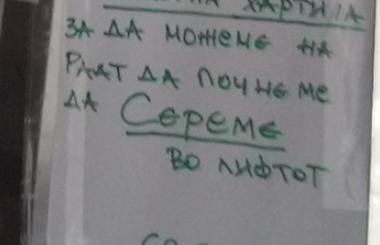 ХАРТИЈА
ЗА ДА МОЖЕМЕ НА
РААТ ДА ПОЧНЕМЕ
ДА СЕРЕМЕ
ВО ЛИФТОТ